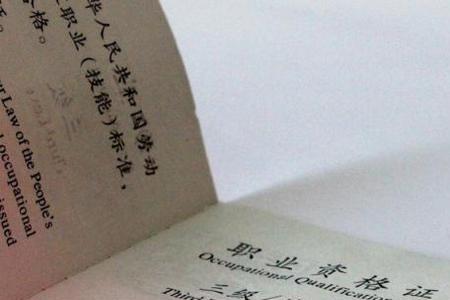 华人民共和国劳动
职业（技能）标准，
格。
Law of the People's
occupational
issued
职业资格证
Occupational Qualification
三级
Third